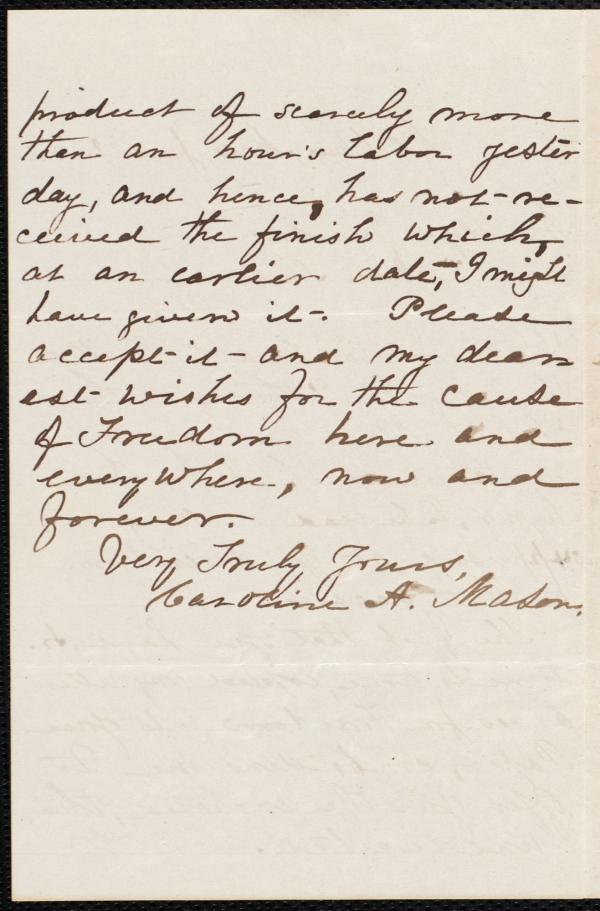 product of scarcely more
than an hour's labor yester
day, and hence, has not re-
ceived the finish which,
at an earlier date, I might
have given it. Please
accept it and my dear
est wishes for the cause
of Freedom here and
everywhere, now and
forever.
Very Truly Yours,
Caroline A. Mason.